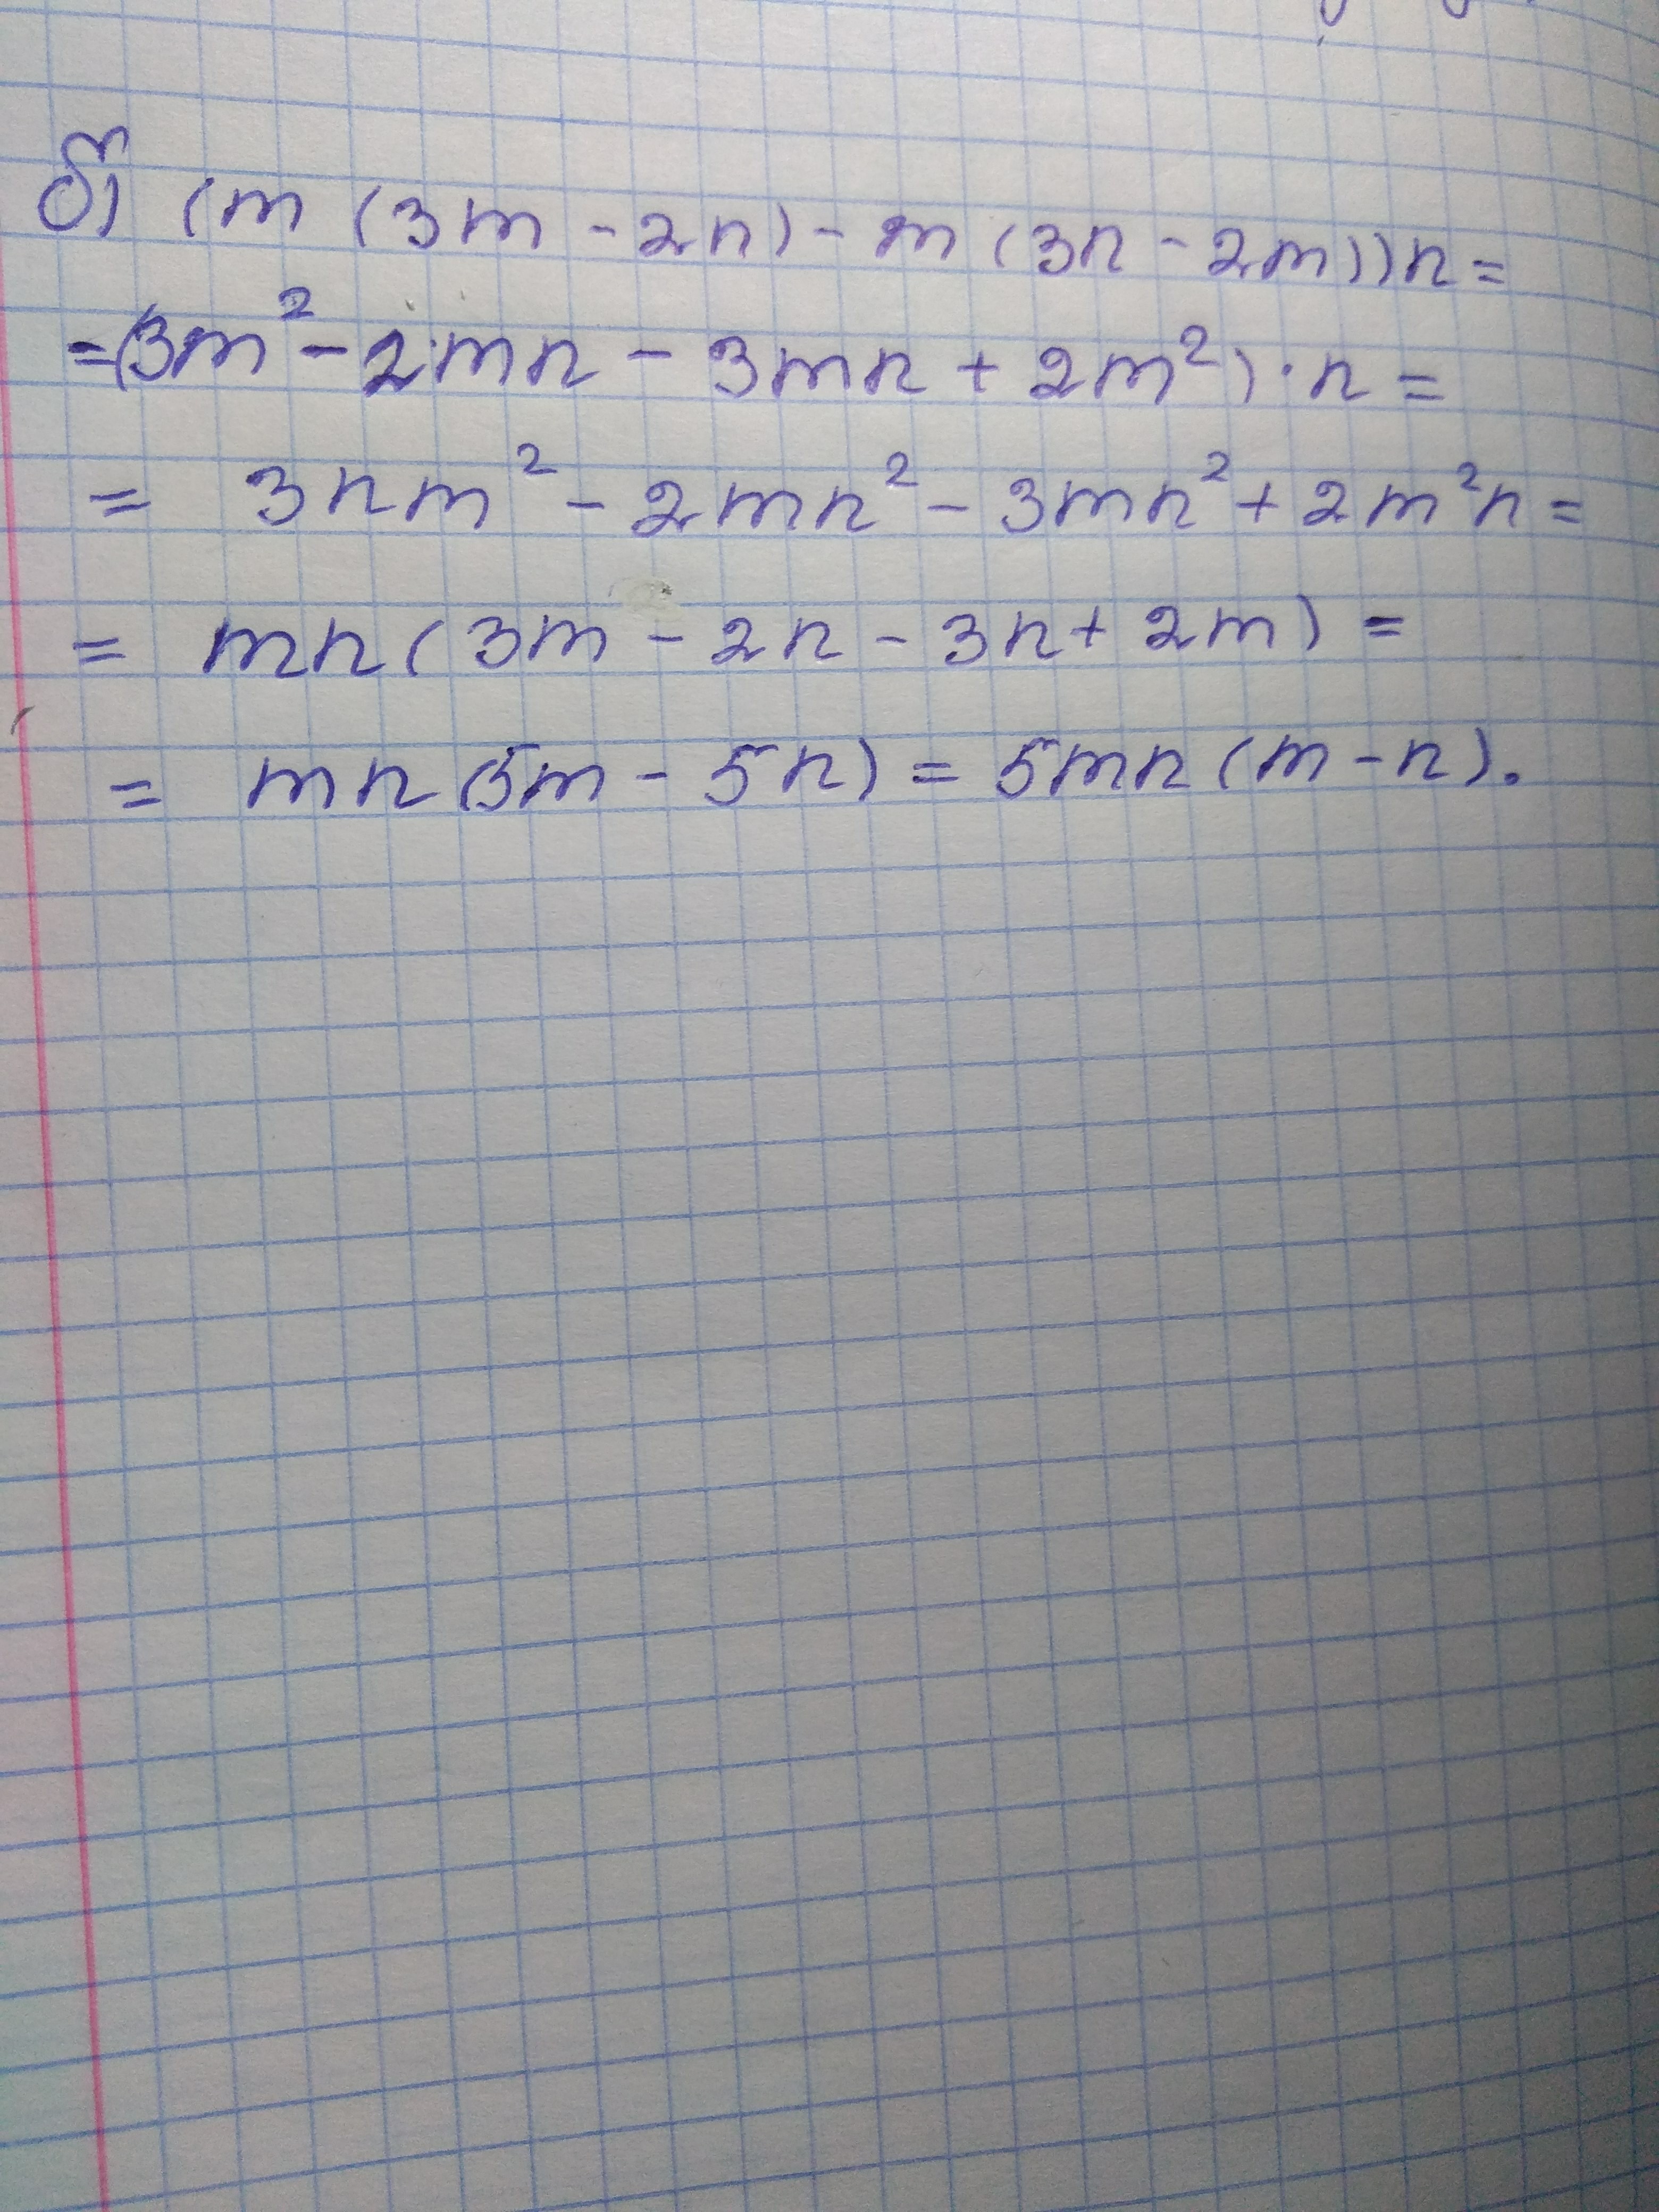 б) (m (3m - 2n) - m (3n - 2m))n =
= (3m² - 2mn - 3mn + 2m²) · n =
= 3nm² - 2mn² - 3mn² + 2m²n =
= mn (3m - 2n - 3n + 2m) =
= mn (5m - 5n) = 5mn (m - n).